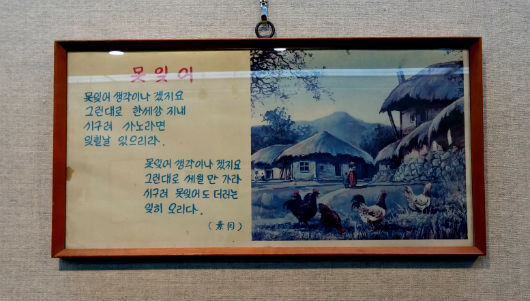 못 잊 어
못잊어 생각이나 겠지요
그런대로 한세상 지내
시구려 사노라면
잊힐날 있으리라.
못잊어 생각이나 겠지요
그런대로 세월 만 가라
시구려 못잊어도 더러는
잊히 오리다.
(素月)